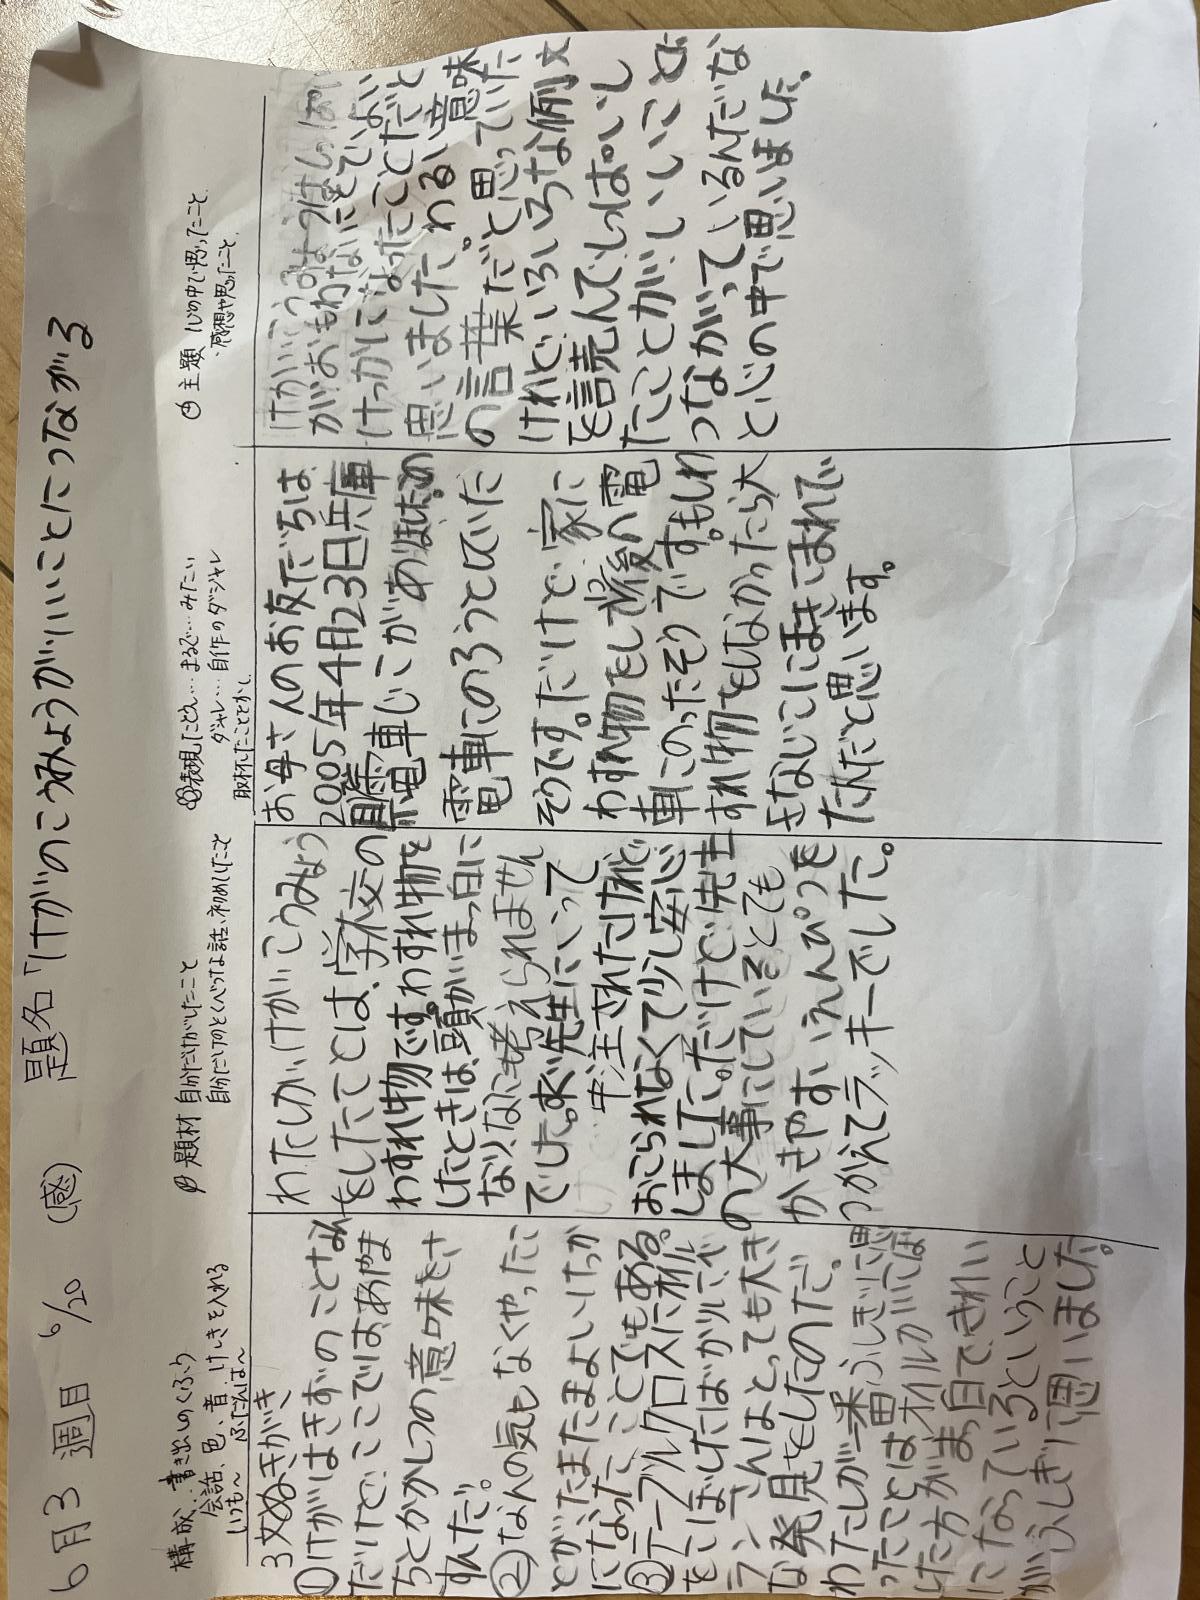 6月3週目 6/20 (感) 題名「けがのこうみょうがいいことにつながる
構成:書き出しのくふう
会話、色、音、けしきを入れる
いつも〜 ふだんは〜
3文ぬきがき
①けがはきずのことなん
だけど、ここではあやま
ちとかかしつの意味をさ
すんだ。
②なんの気もなくやったこ
とがたまたまよいけっか
になったことでもある。
③テーブルクロスにオイル
をこぼしたばかりにジャ
ランさんはとっても大き
な発見をしたのだ。
わたしが一番ふしぎに思
ったことはオイルがこぼ
れた方がまっ白できれい
になっているということ
がふしぎに思いました。
題材 自分だけがしたこと
自分だけのとくべつな話、初めてしたこと
わたしがけがのこうみょう
をしたことは、学校の
わすれ物です。わすれ物を
したときは、頭がまっ白に
なり、なにも考えられません
でした。先生にいって
中注されたけど
おこられなくて少し安心
しました。だけど、先生
の大事にしているとても
かきやすいえんぴつを
つかえてラッキーでした。
表現 たとえ…まるで…みたい
ダジャレ…自作のダジャレ
取材したこととか
お母さんのお友だちは
2005年4月23日兵庫
県電車じこがありました。
電車にのろうとしていた
そうです。だけど、家に
わすれ物をし最後の電
車にのったそうです。もしわ
すれ物をしなかったら大
きなじこにまきこまれて
たんだと思います。
主題 心の中で思ったこと
・感想や思ったこと
がおもわないことでよい
けっかになったことだと
思いました。わるい意味
の言葉だと思っていた
けれどいろいろな例文
を読んでしっぱいし
たことがいいことに
つながっているんだな
と心の中で思いました。